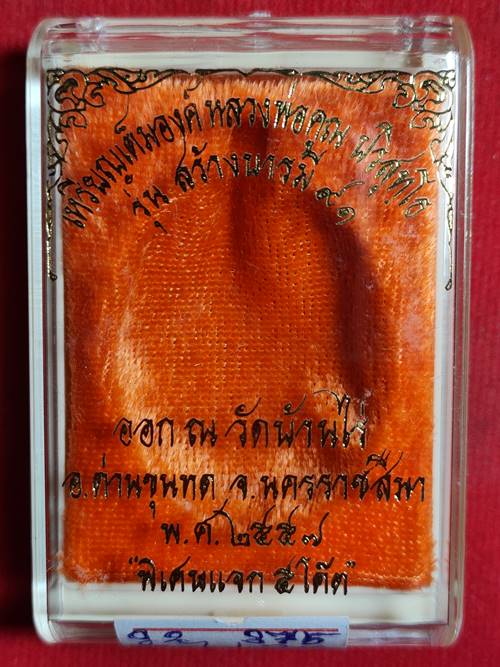 เหรียญเต็มองค์ หลวงพ่อคูณ ปริสุทโธ
รุ่น สร้างบารมี ๙๑
ออก ณ วัดบ้านไร่
อ.ด่านขุนทด จ.นครราชสีมา
พ.ศ.๒๕๕๗
"พิเศษแจก ๕ โค๊ต"